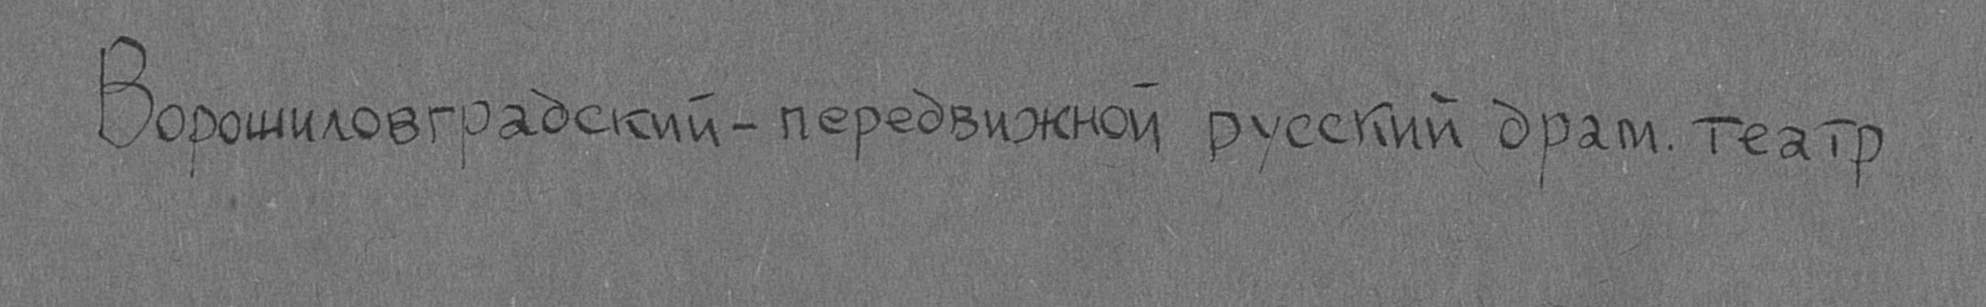 Ворошиловградский - передвижной русский драм. театр